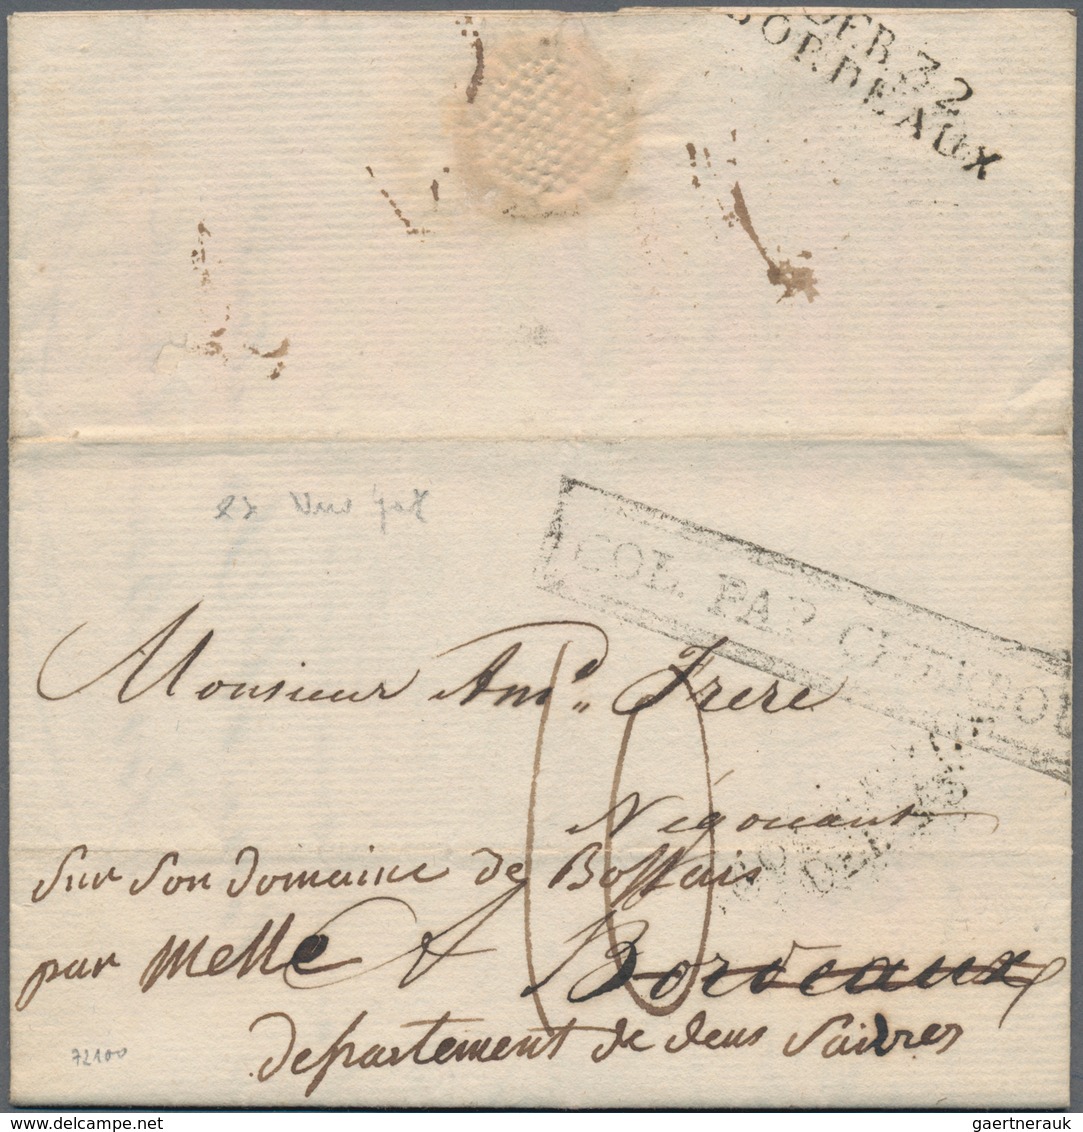 DEB. 32
BORDEAUX
27 Nov
COL. PAR CHERBO
Monsieur Am.d Frere
10
Négociant
sur son domaine de Boffais
par Melle A Bordeaux
departement de deus Saivres
72100
gaertnerauk